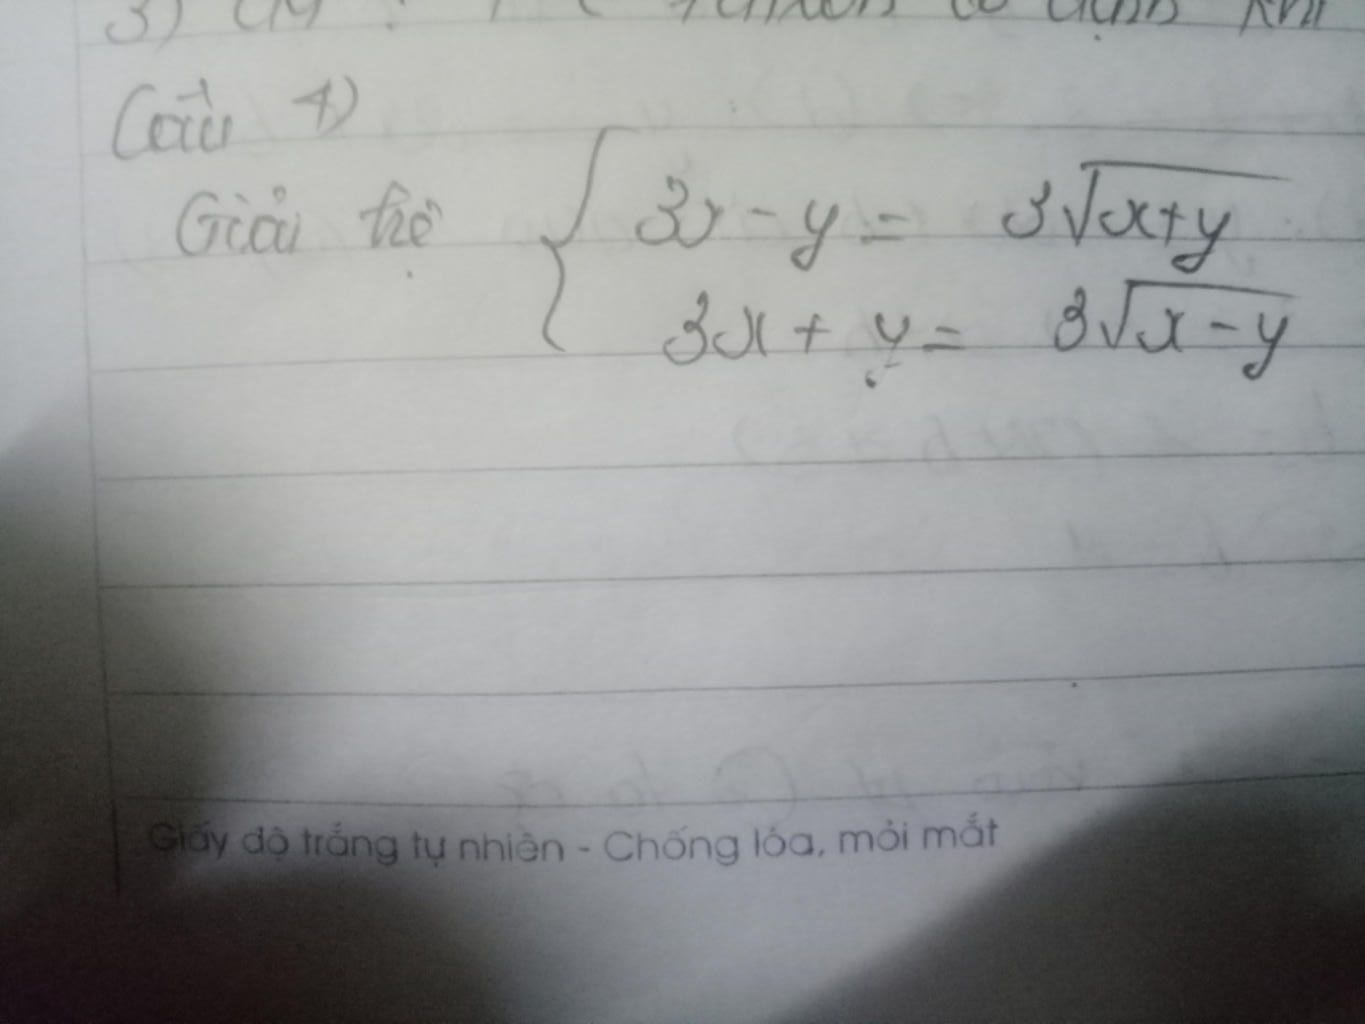 3) CM :
cố định khi
Câu 4)
Giải hệ { 3x - y = 3√x+y
3x + y = 3√x - y
Giấy độ trắng tự nhiên - Chống lóa, mỏi mắt